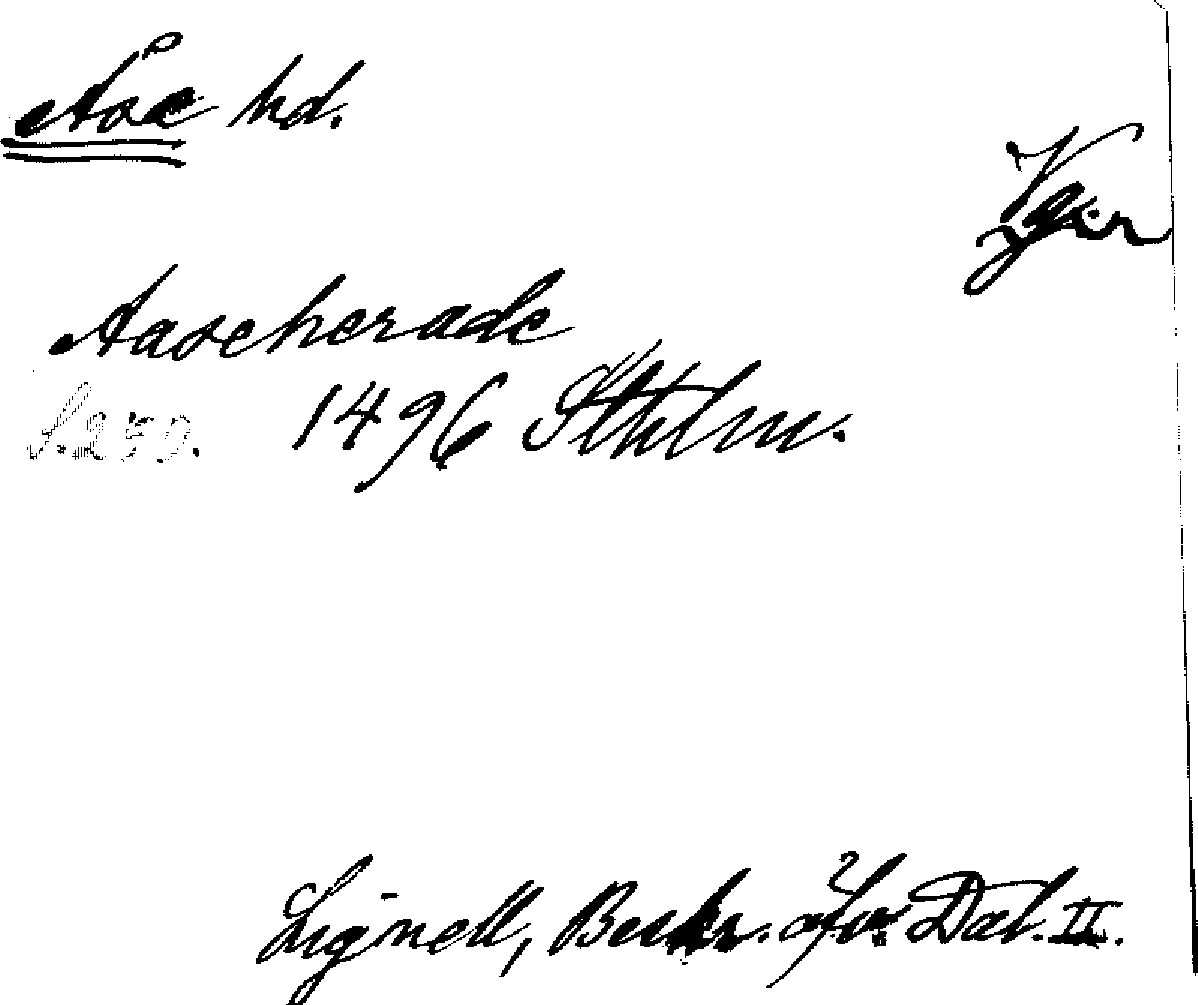 Åse hd.
Vgr
Aascherade
S. 250. 1496 Sthlm.
Lignell, Beskr. öfv. Dal. II.